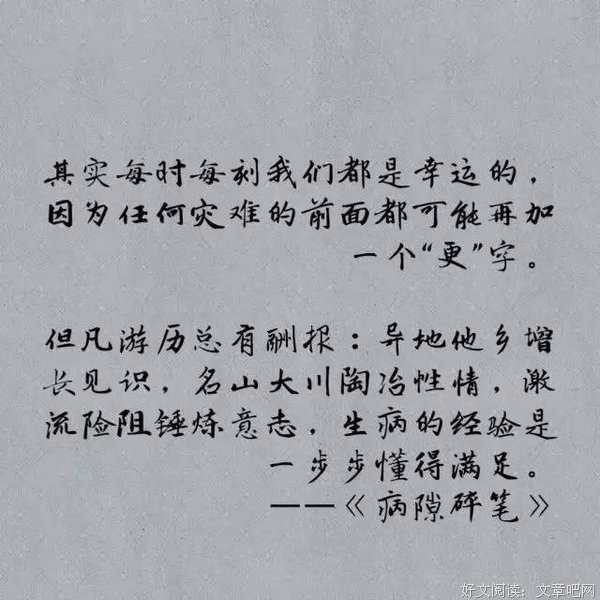 其实每时每刻我们都是幸运的，
因为任何灾难的前面都可能再加
一个“更”字。
但凡游历总有酬报：异地他乡增
长见识，名山大川陶冶性情，激
流险阻锤炼意志，生病的经验是
一步步懂得满足。
——《病隙碎笔》
好文阅读：文章吧网